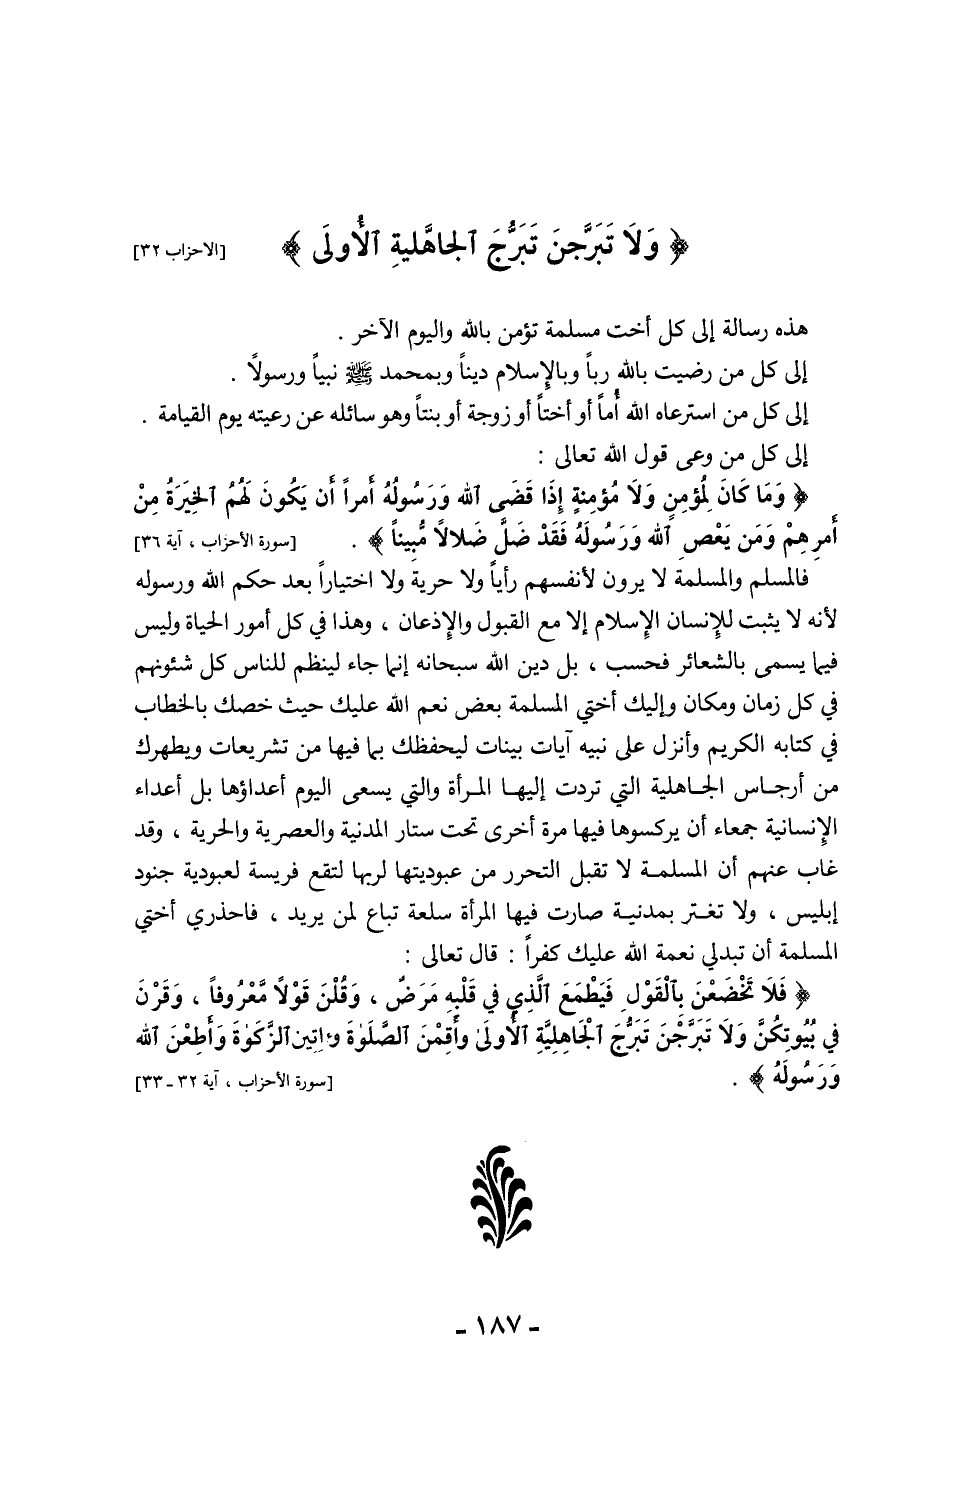 ﴿ وَلَا تَبَرَّجنَ تَبَرُّجَ ٱلجاهَّليةِ ٱلأُولَى ﴾ [الاحزاب ٣٢]
هذه رسالة إلى كل أخت مسلمة تؤمن بالله واليوم الآخر .
إلى كل من رضيت بالله رباً وبالإسلام ديناً وبمحمد ﷺ نبياً ورسولاً .
إلى كل من استرعاه الله أُماً أو أختاً أو زوجة أو بنتاً وهو سائله عن رعيته يوم القيامة .
إلى كل من وعى قول الله تعالى :
﴿ وَمَا كَانَ لِمُؤمِنٍ وَلَا مُؤمِنةٍ إِذَا قَضَى ٱلله وَرَسُولُهُ أَمراً أَن يَكُونَ لَهُمُ ٱلخِيَرَةُ مِنْ
أَمرِهِمْ وَمَن يَعْصِ ٱلله وَرَسُولَهُ فَقَدْ ضَلَّ ضَلالاً مُّبِيناً ﴾ . [سورة الأحزاب ، آية ٣٦]
فالمسلم والمسلمة لا يرون لأنفسهم رأياً ولا حرية ولا اختياراً بعد حكم الله ورسوله
لأنه لا يثبت للإنسان الإسلام إلا مع القبول والإذعان ، وهذا في كل أمور الحياة وليس
فيما يسمى بالشعائر فحسب ، بل دين الله سبحانه إنما جاء لينظم للناس كل شئونهم
في كل زمان ومكان وإليك أختي المسلمة بعض نعم الله عليك حيث خصك بالخطاب
في كتابه الكريم وأنزل على نبيه آيات بينات ليحفظك بما فيها من تشريعات ويطهرك
من أرجاس الجاهلية التي تردت إليها المرأة والتي يسعى اليوم أعداؤها بل أعداء
الإنسانية جمعاء أن يركسوها فيها مرة أخرى تحت ستار المدنية والعصرية والحرية ، وقد
غاب عنهم أن المسلمة لا تقبل التحرر من عبوديتها لربها لتقع فريسة لعبودية جنود
إبليس ، ولا تغتر بمدنية صارت فيها المرأة سلعة تباع لمن يريد ، فاحذري أختي
المسلمة أن تبدلي نعمة الله عليك كفراً : قال تعالى :
﴿ فَلَا تَخْضَعْنَ بِٱلْقَوْلِ فَيَطْمَعَ ٱلَّذِي فِي قَلْبِهِ مَرَضٌ ، وَقُلْنَ قَوْلاً مَّعْرُوفاً ، وَقَرْنَ
فِي بُيُوتِكُنَّ وَلَا تَبَرَّجْنَ تَبَرُّجَ ٱلْجَاهِلِيَّةِ ٱلأُولَىٰ وأَقِمْنَ ٱلصَّلَوٰةَ وءاتِين ٱلزَّكَوٰةَ وَأَطِعْنَ ٱلله
وَرَسُولَهُ ﴾ . [سورة الأحزاب ، آية ٣٢ - ٣٣]
- ١٨٧ -